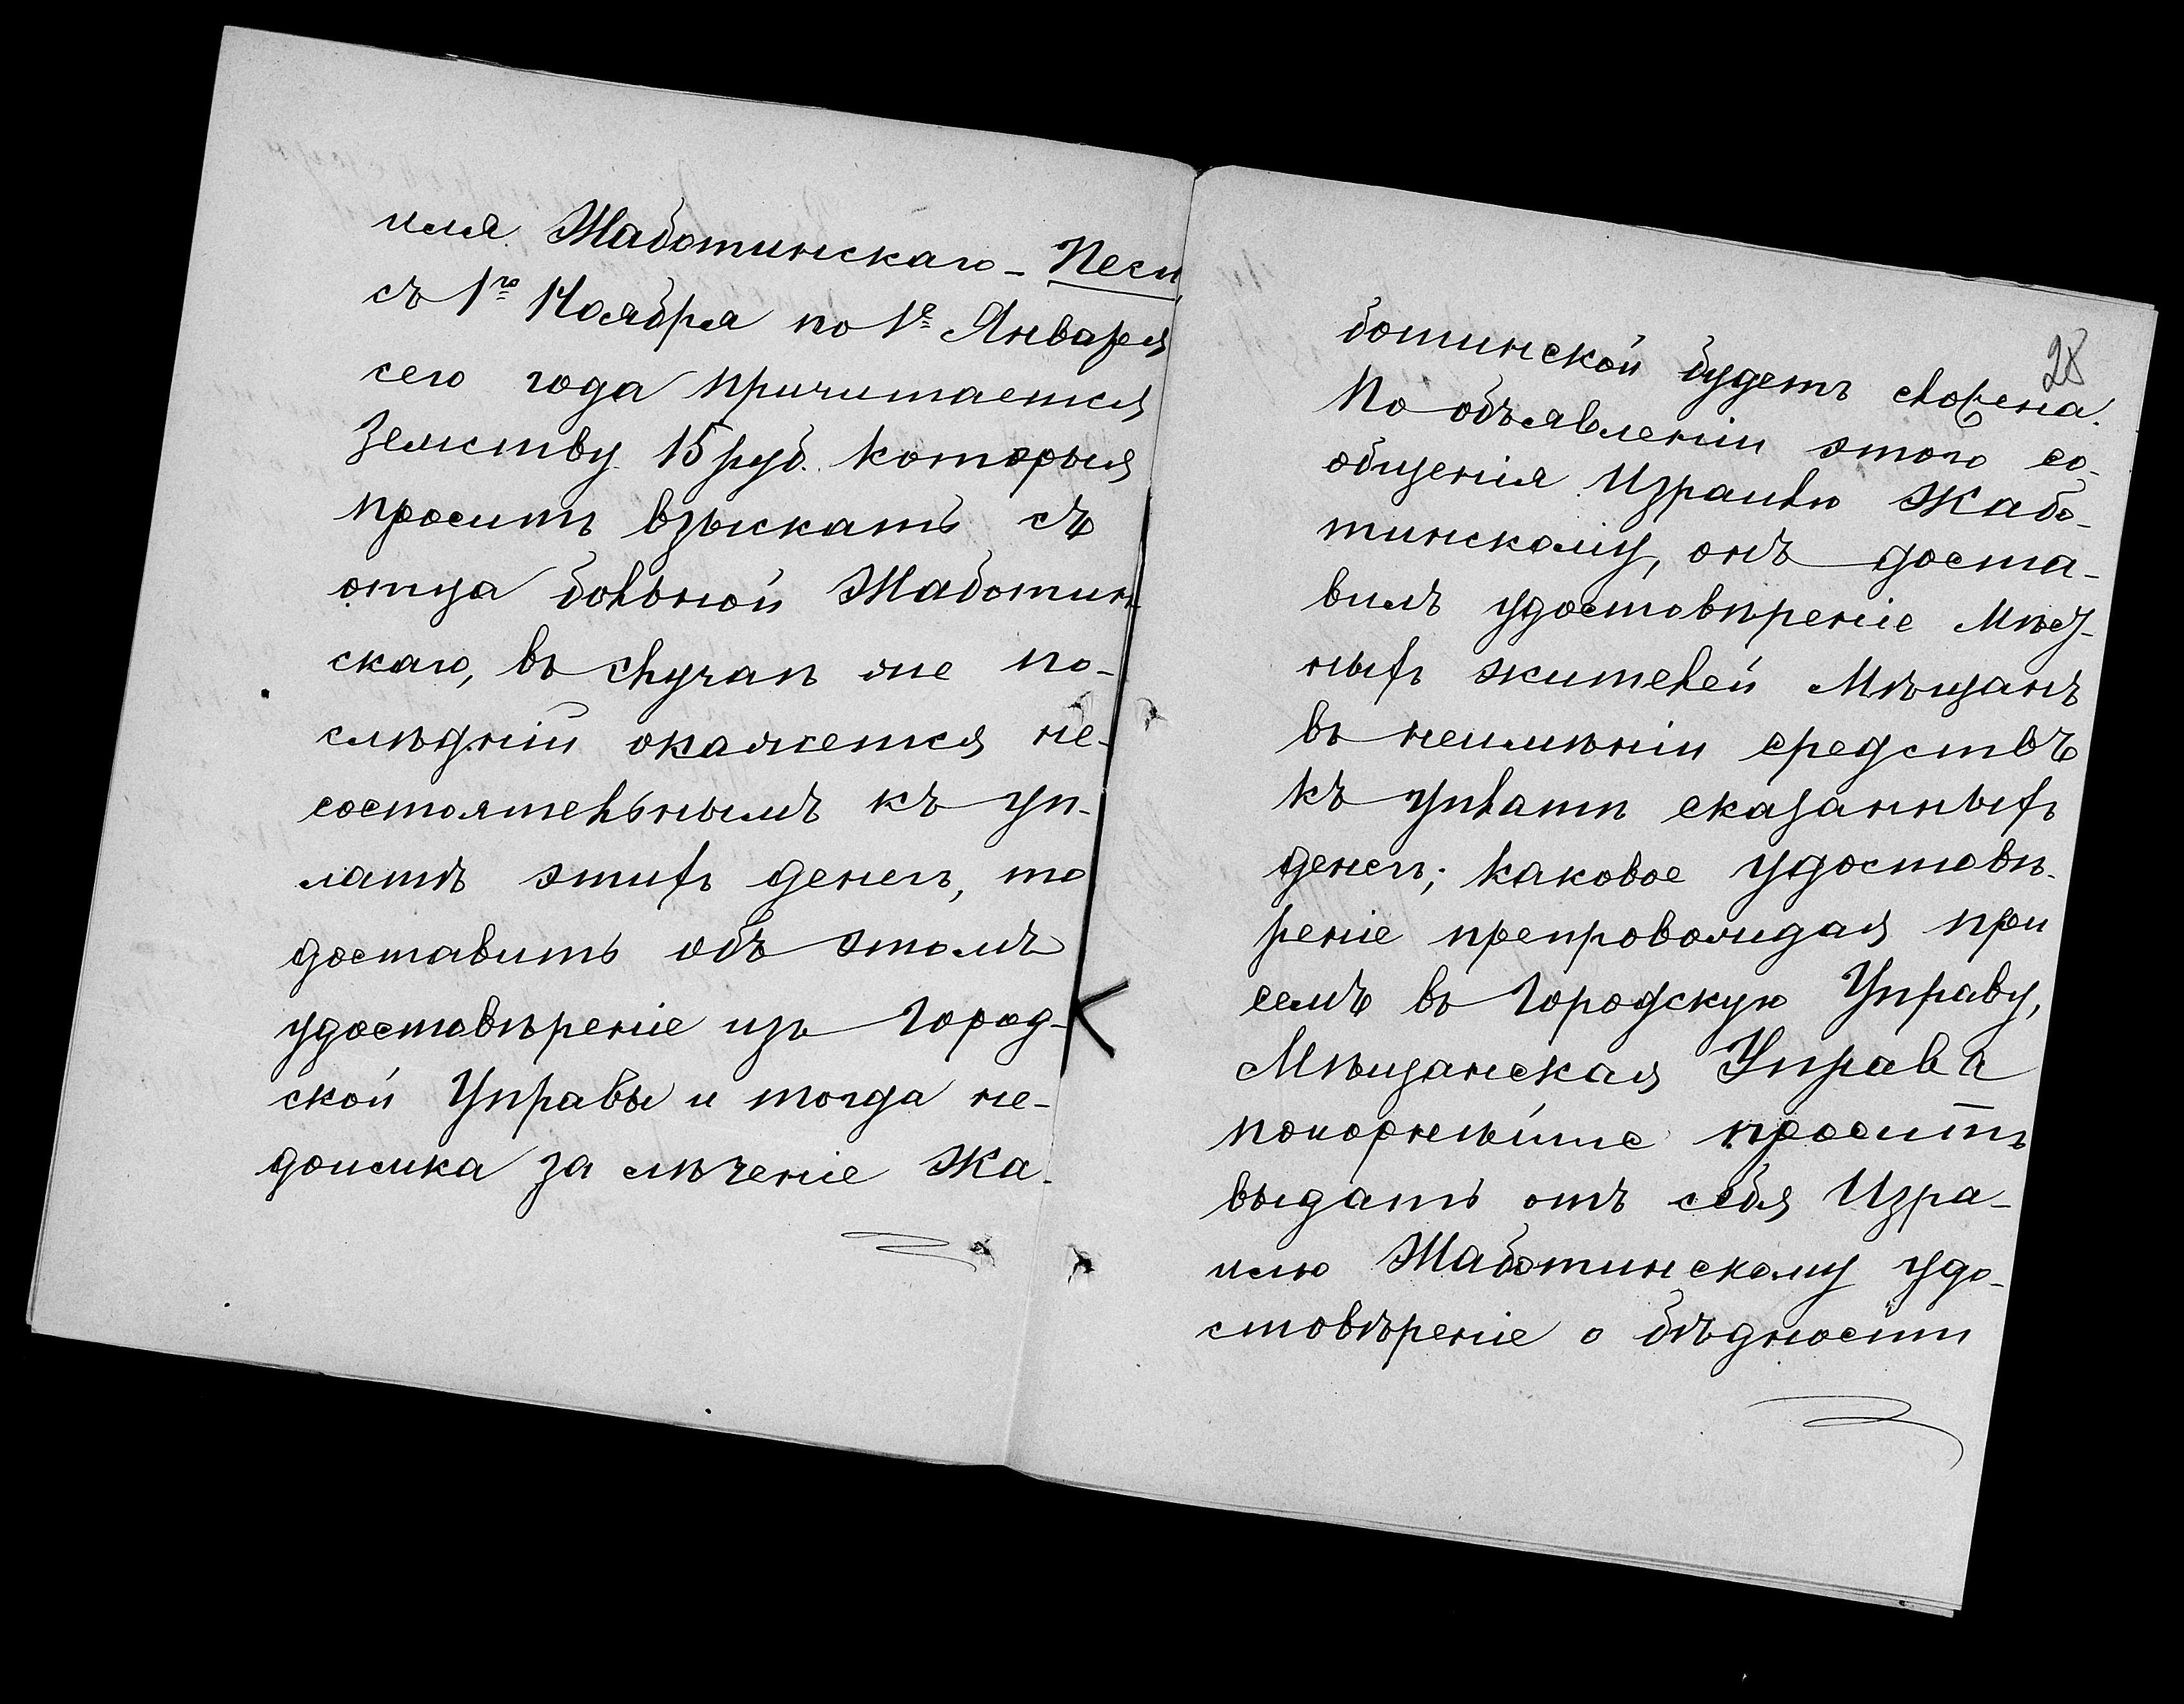 иля Жаботинскаго - Песи
съ 1го Ноября по 1е Января
сего года причитается
Земству 15 руб. которыя
проситъ взыскать съ
отца больной Жаботин
скаго, въ случаѣ же по-
слѣдній окажется не-
состоятельнымъ къ уп-
латѣ этихъ денегъ, то
доставить объ этомъ
удостовѣреніе изъ Город-
ской Управы и тогда не-
доимка за лѣченіе Жа-
28
ботинской будетъ сложена.
По объявленіи этого со-
общенія Израилю Жабо-
тинскому, онъ доста-
вилъ удостовѣреніе Мѣст-
ныхъ жителей Мѣщанъ
въ неимѣніи средствъ
къ уплатѣ сказанныхъ
денегъ; каковое удостовѣ-
реніе препровождая при
семъ въ Городскую Управу,
Мѣщанская Управа
покорнѣйше проситъ
выдать отъ себя Изра-
илю Жаботинскому удо-
стовѣреніе о бѣдности